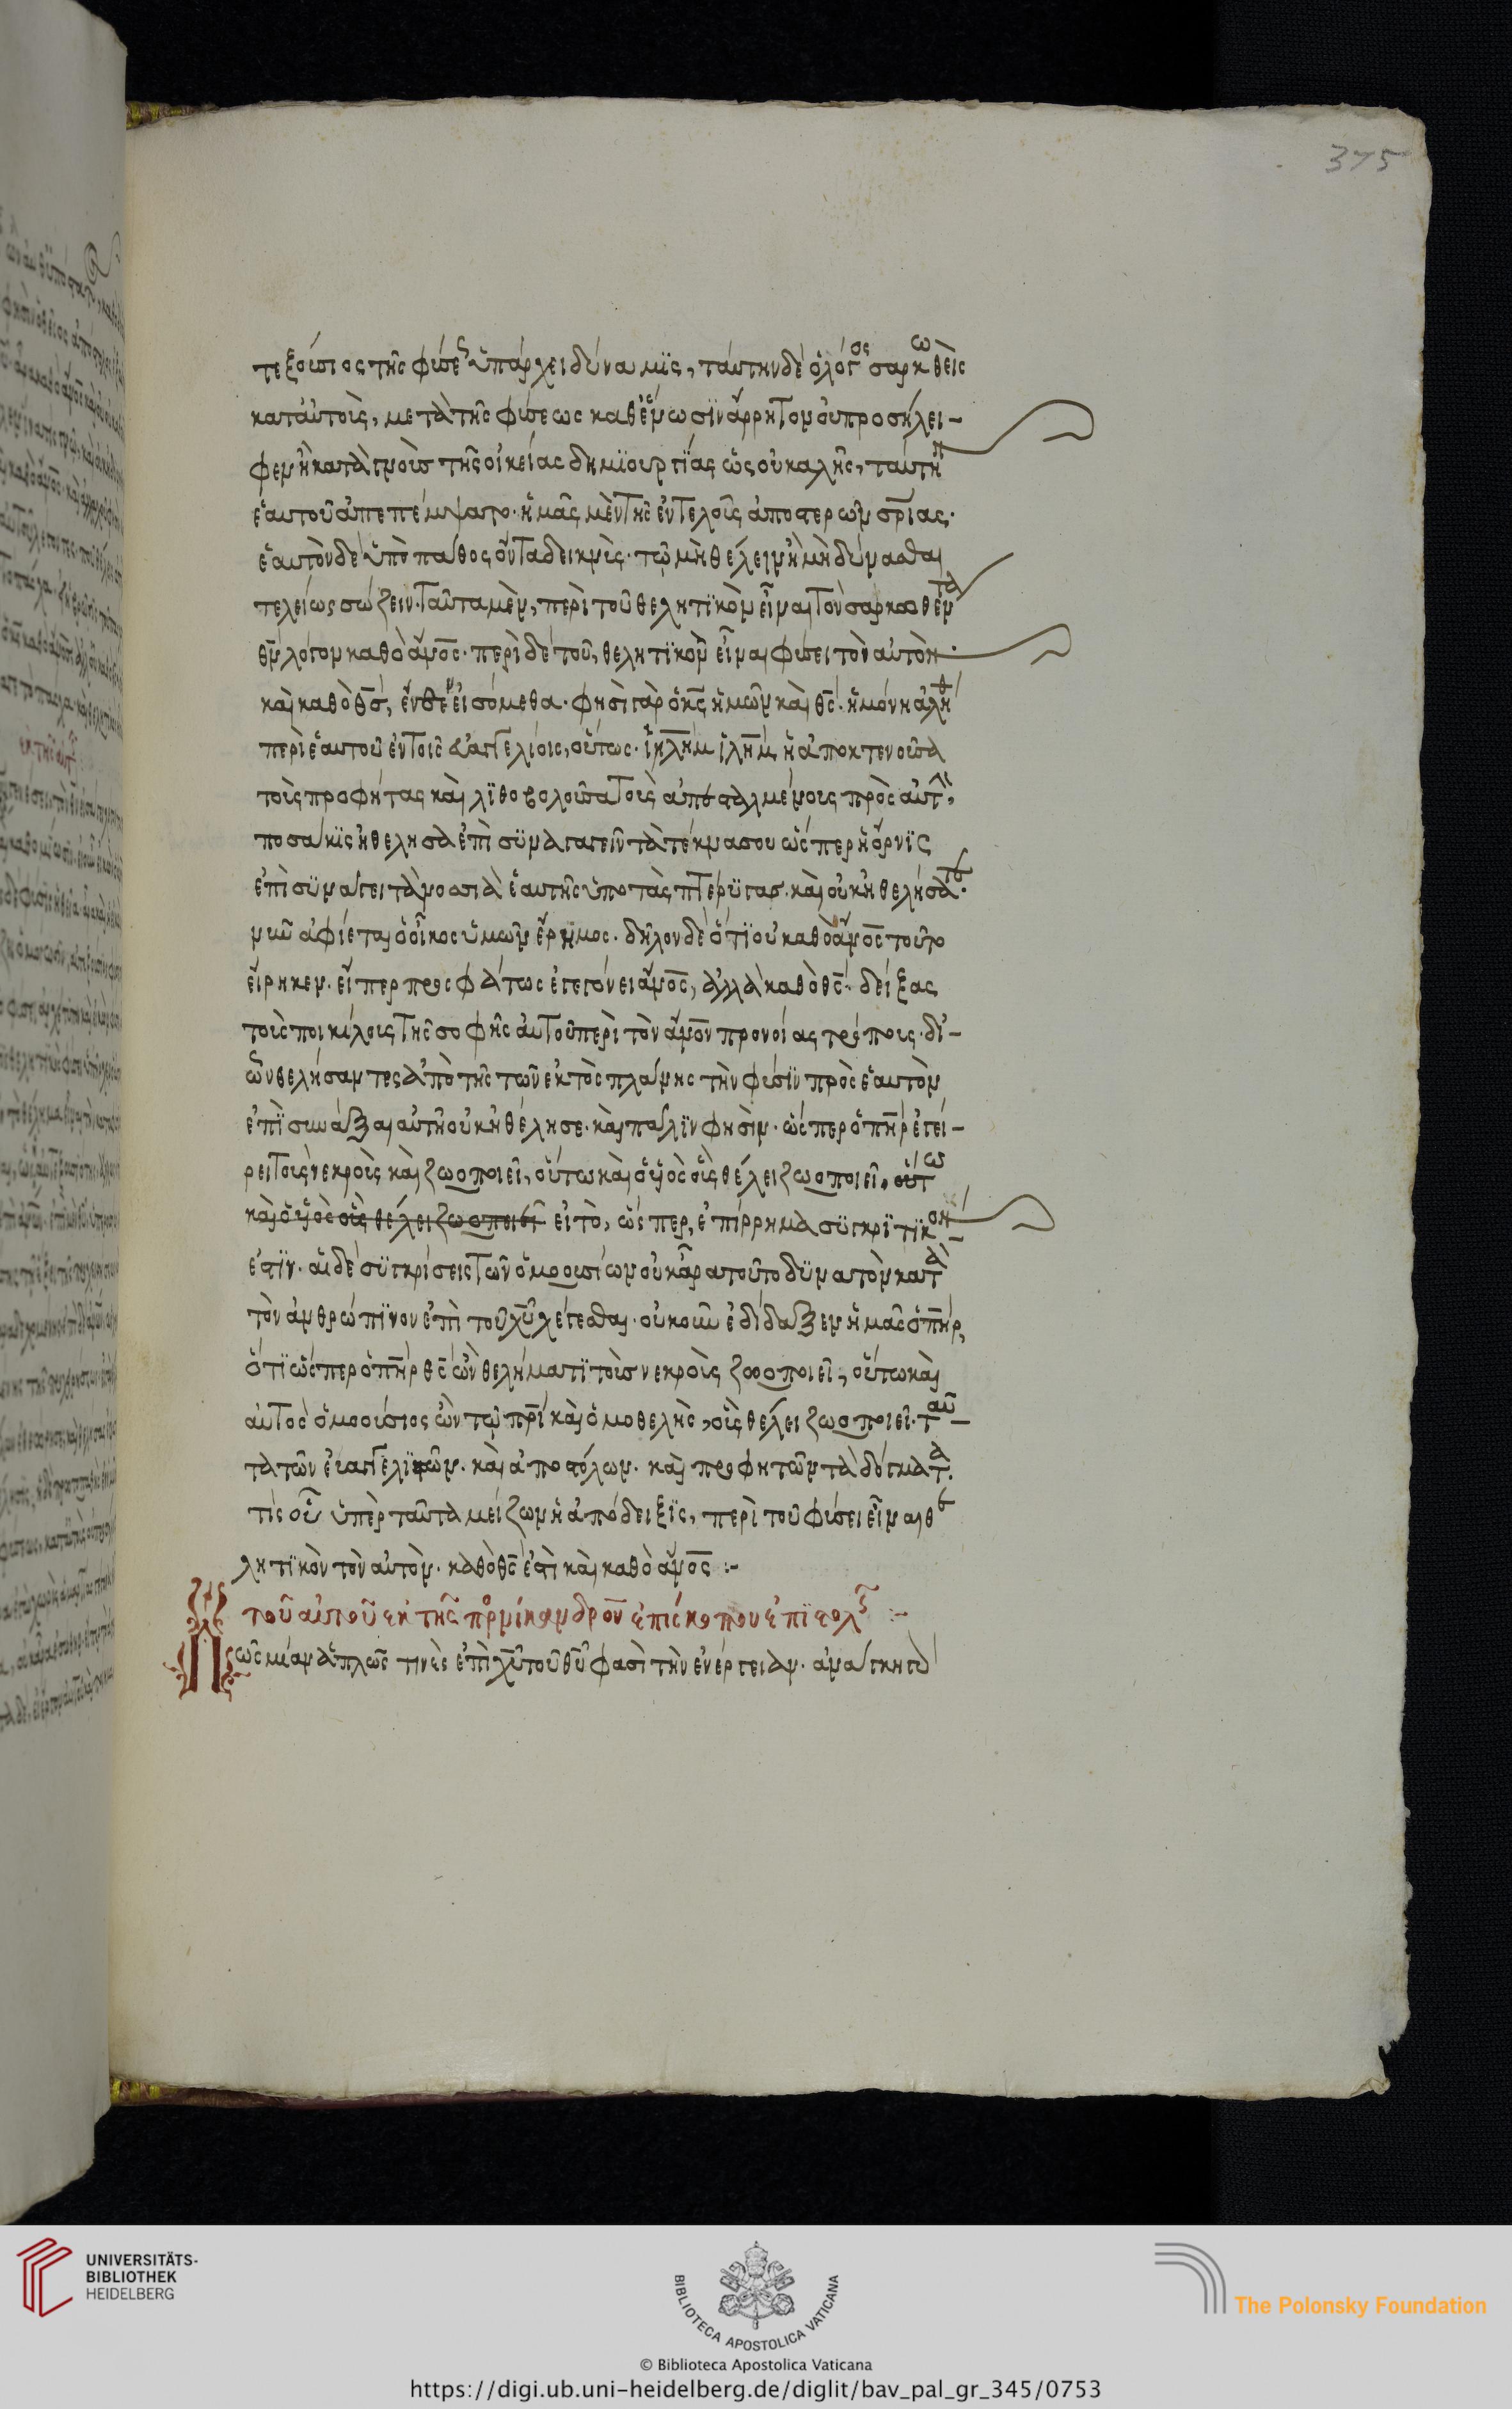 375
τεξούσιος τῆς φύσεως ὑπάρχει δύναμϊς, ταύτην δὲ ὁ λόγος σαρκωθεὶς
κατ' αὐτοὺς, μετὰ τῆς φύσεως καθ' ἕνωσϊν ἄρρητον οὐ προσήλει-
φεν ἢ καταγνοὺς τῆς οἰκείας δημϊουργΐας ὡς οὐ καλῆς, ταύτην
ἑαυτοῦ ἀπεπέμψατο· ἡμᾶς μὲν τῆς ἐντελοῦς ἀποστερῶν σρίας·
ἑαυτὸν δὲ ὑπὸ πάθος ὄντα δεικνὺς· τῷ μὴ θέλειν ἢ μὴ δύνασθαι
τελείως σώζειν· ταῦτα μὲν, περὶ τοῦ θελητϊκὸν εἶναι τὸν σαρκωθέντα
θν λόγον καθὸ ἄνος· περὶ δὲ τοῦ, θελητϊκὸν εἶναι φύσει τὸν αὐτὸν·
καὶ καθὸ θς, ἐνθένδε εἰσόμεθα· φησὶ γὰρ ὁ κς ἡμῶν καὶ θς· ἡ μόνη ἀλήθ
περὶ ἑαυτοῦ ἐν τοῖς εὐαγγελίοις, οὕτως· ἱηλὴμ ἱλὴμ ἡ ἀποκτενοῦσα
τοὺς προφήτας καὶ λϊθοβολοῦσα τοὺς ἀπεσταλμένους πρὸς αὐτὴν,
ποσάκϊς ἠθέλησα ἐπϊσϋναγαγεῖν τὰ τέκνα σου ὥσπερ ἡ ὄρνϊς
ἐπϊσϋνάγει τὰ νοσσιὰ ἑαυτῆς ὑπὸ τὰς πτέρϋγας· καὶ οὐκ ἠθελήσατε·
νῦν ἀφίεται ὁ οἶκος ὑμῶν ἔρημος· δῆλον δὲ ὅτϊ οὐ καθὸ ἄνος τοῦτο
εἴρηκεν· εἴπερ προσφάτως ἐγεγόνει ἄνος, ἀλλὰ καθὸ θς· δείξας
τοὺς ποικίλους τῆς σοφῆς αὐτοῦ περὶ τὸν ἄνον προνοίας τρόπους· δι'-
ὧν θελήσαντες ἀπὸ τῆς τῶν ἐκτὸς πλάνης τὴν φύσϊν πρὸς ἑαυτὸν
ἐπϊσυνάξαι αὐτὴ οὐκ ἠθέλησε· καὶ πάλϊν φησὶν· ὥσπερ ὁ πὴρ ἐγεί-
ρει τοὺς νεκροὺς καὶ ζωοποιεῖ, οὕτω καὶ ὁ υἱὸς οὓς θέλει ζωοποιεῖ, οὕτω
καὶ ὁ υἱὸς οὓς θέλει ζωοποιεῖ εἰ τὸ, ὥσπερ, ἐπίρρημα σϋγκρϊτϊκόν-
ἐστϊν· αἱ δὲ σϋγκρίσεις τῶν ὁμοουσίων οὐκ ἄρα τοῦτο δϋνατὸν κατὰ
τὸν ἀνθρώπϊνον ἐπὶ τοῦ χῦ λέγεσθαι· οὐκοῦν ἐδίδαξεν ἡμᾶς ὁ σὴρ,
ὅτϊ ὥσπερ ὁ πὴρ θς ὢν θελήματϊ τοὺς νεκροὺς ζωοποιεῖ, οὕτω καὶ
αὐτὸς ὁμοούσιος ὢν τῷ πρὶ καὶ ὁμοθελὴς, οὓς θέλει ζωοποιεῖ· ταῦ-
τα τῶν εὐαγγελϊκῶν· καὶ ἀποστόλων· καὶ προφητῶν τὰ δόγματα·
τίς οὖν ὑπὲρ ταῦτα μείζων ἡ ἀπόδειξϊς, περὶ τοῦ φύσει εἶναι θε
λητϊκὸν τὸν αὐτὸν· καθὸ θς ἐστὶ καὶ καθὸ ἄνος :-
τοῦ αὐτοῦ ἐκ τῆς πρ νίκανδρον ἐπισκόπου ἐπϊστολς :-
Πῶς μίαν ἁπλῶς τινὲς ἐπὶ χῦ τοῦ θῦ φασὶ τὴν ἐνέργειαν· ἀνάγκη τὸ
UNIVERSITÄTS-
BIBLIOTHEK
HEIDELBERG
BIBLIOTECA APOSTOLICA VATICANA
The Polonsky Foundation
© Biblioteca Apostolica Vaticana
https://digi.ub.uni-heidelberg.de/diglit/bav_pal_gr_345/0753